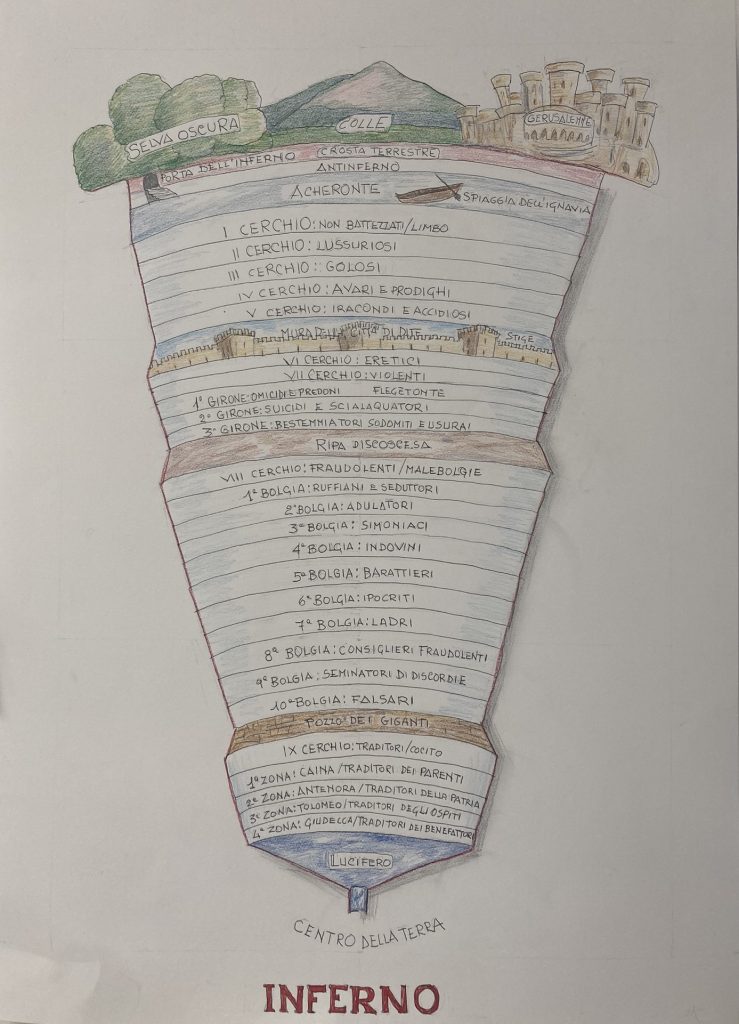 SELVA OSCURA
COLLE
GERUSALEMME
PORTA DELL'INFERNO (CROSTA TERRESTRE)
ANTINFERNO
ACHERONTE
SPIAGGIA DELL'IGNAVIA
I CERCHIO: NON BATTEZZATI/LIMBO
II CERCHIO: LUSSURIOSI
III CERCHIO: GOLOSI
IV CERCHIO: AVARI E PRODIGHI
V CERCHIO: IRACONDI E ACCIDIOSI
MURA DELLA CITTÀ DI DITE
STIGE
VI CERCHIO: ERETICI
VII CERCHIO: VIOLENTI
1° GIRONE: OMICIDI E PREDONI FLEGETONTE
2° GIRONE: SUICIDI E SCIALAQUATORI
3° GIRONE: BESTEMMIATORI SODOMITI E USURAI
RIPA DISCOSCESA
VIII CERCHIO: FRAUDOLENTI/MALEBOLGIE
1ª BOLGIA: RUFFIANI E SEDUTTORI
2ª BOLGIA: ADULATORI
3ª BOLGIA: SIMONIACI
4ª BOLGIA: INDOVINI
5ª BOLGIA: BARATTIERI
6ª BOLGIA: IPOCRITI
7ª BOLGIA: LADRI
8ª BOLGIA: CONSIGLIERI FRAUDOLENTI
9ª BOLGIA: SEMINATORI DI DISCORDIE
10ª BOLGIA: FALSARI
POZZO DEI GIGANTI
IX CERCHIO: TRADITORI/COCITO
1ª ZONA: CAINA/TRADITORI DEI PARENTI
2ª ZONA: ANTENORA/TRADITORI DELLA PATRIA
3ª ZONA: TOLOMEO/TRADITORI DEGLI OSPITI
4ª ZONA: GIUDECCA/TRADITORI DEI BENEFATTORI
LUCIFERO
CENTRO DELLA TERRA
INFERNO